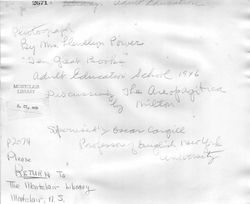 2671
Adult Education
Photograph
By Mrs Llewellyn Power
"Ten Great Books"
Adult Education School 1946
Discussing The Areopagitica
by Milton
MONTCLAIR
LIBRARY
Sponsored by Oscar Cargill
Professor of English New York
University
P2079
Please
RETURN To
The Montclair Library
Montclair, N.J.